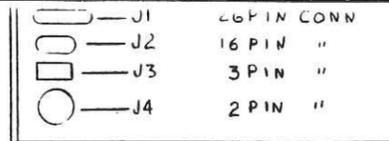 J1 26 PIN CONN
J2 16 PIN "
J3 3 PIN "
J4 2 PIN "